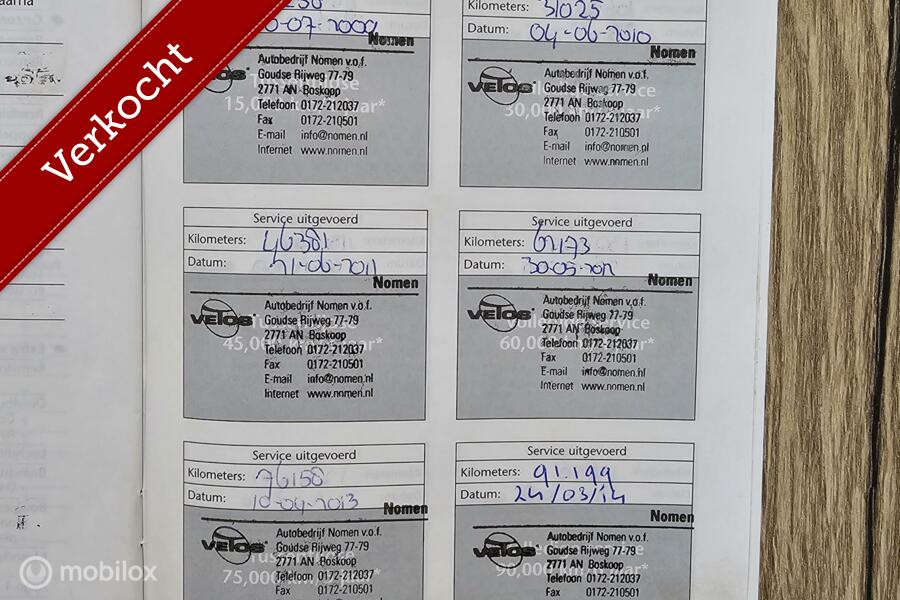 Verkocht
0-07-2009
Nomen
Autobedrijf Nomen v.o.f.
VELOS Goudse Rijweg 77-79
2771 AN Boskoop
Telefoon 0172-212037
Fax 0172-210501
E-mail info@nomen.nl
Internet www.nomen.nl
Kilometers: 31025
Datum: 04-06-2010
Nomen
Autobedrijf Nomen v.o.f.
VELOS Goudse Rijweg 77-79
2771 AN Boskoop
30,000
Telefoon 0172-212037
Fax 0172-210501
E-mail info@nomen.nl
Internet www.nomen.nl
Service uitgevoerd
Kilometers: 46381
Datum: 21-06-2011
Nomen
Autobedrijf Nomen v.o.f.
VELOS Goudse Rijweg 77-79
2771 AN Boskoop
45,000
Telefoon 0172-212037
Fax 0172-210501
E-mail info@nomen.nl
Internet www.nomen.nl
Service uitgevoerd
Kilometers: 62173
Datum: 30-05-2012
Nomen
Autobedrijf Nomen v.o.f.
VELOS Goudse Rijweg 77-79
2771 AN Boskoop
60,000
Telefoon 0172-212037
Fax 0172-210501
E-mail info@nomen.nl
Internet www.nomen.nl
Service uitgevoerd
Kilometers: 76158
Datum: 10-04-2013
Nomen
Autobedrijf Nomen v.o.f.
VELOS Goudse Rijweg 77-79
2771 AN Boskoop
75,000
Telefoon 0172-212037
Fax 0172-210501
Service uitgevoerd
Kilometers: 91.199
Datum: 24/03/14
Nomen
Autobedrijf Nomen v.o.f.
VELOS Goudse Rijweg 77-79
2771 AN Boskoop
90,000
Telefoon 0172-212037
Fax 0172-210501
mobilox